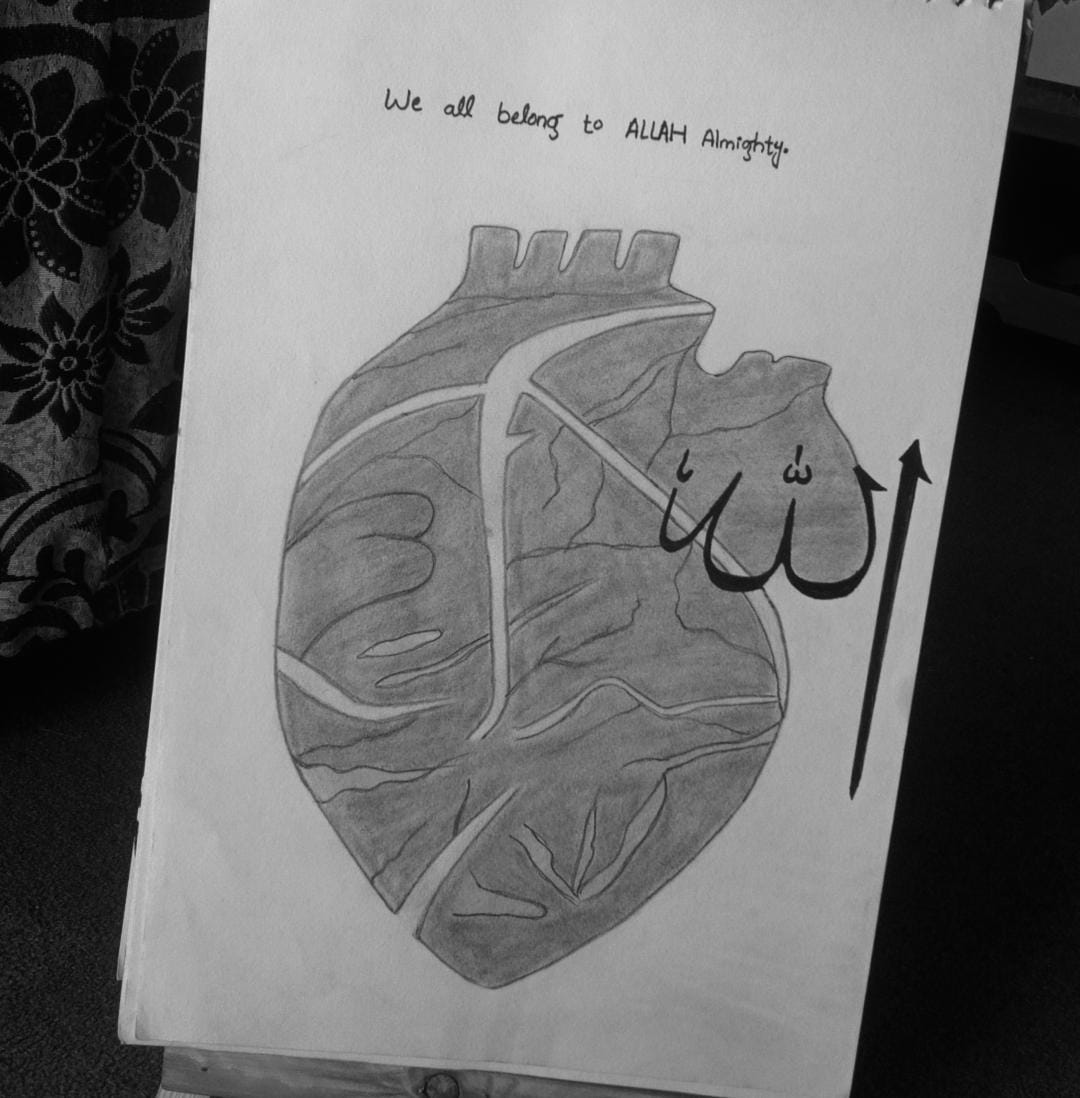 We all belong to ALLAH Almighty.
الله